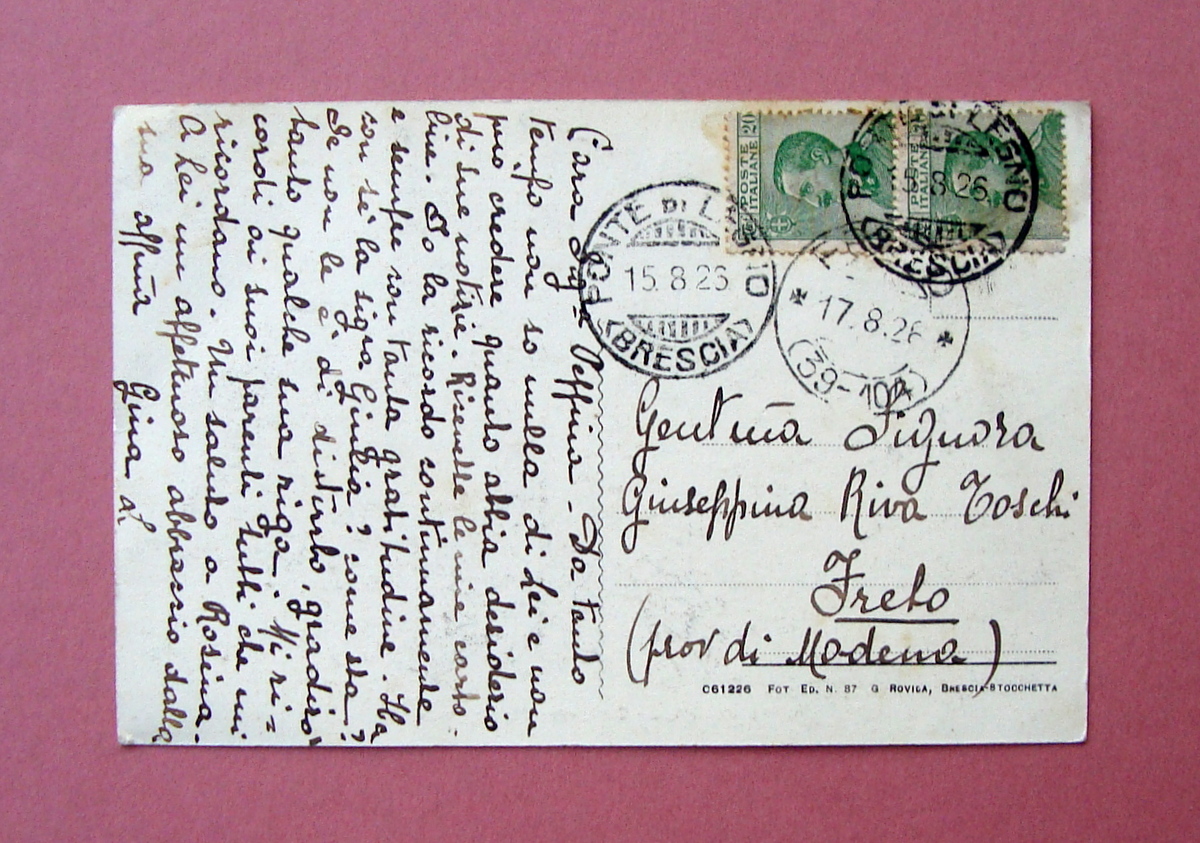 Cara Sig.ra Peffina - Da tanto
tempo non so nulla di Lei e non
può credere quanto abbia desiderio
di sue notizie. Ricevette le mie carto-
line. Io la ricordo continuamente
e sempre con tanta gratitudine. Ha
con sè la sigra Giulia? come sta?
Se non le è di disturbo, gradirò
tanto qualche sua riga. Mi ri=
cordi ai suoi parenti tutti che mi
ricordano. Un saluto a Rosina.
A Lei un affettuoso abbraccio dalla
sua affma
Gina L.
POSTE ITALIANE 20
POSTE ITALIANE
PONTE DI LEGNO
15.8.26
(BRESCIA)
PONTE DI LEGNO
15.8.26
(BRESCIA)
17.8.26
(39-104)
Gentma Signora
Giuseppina Riva Toschi
Freto
(prov di Modena)
C61226 FOT ED. N. 87 G ROVIDA, BRESCIA-STOCCHETTA